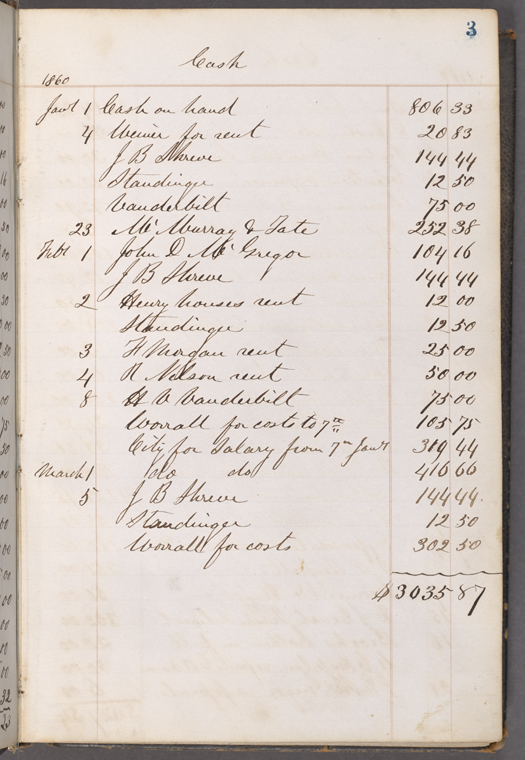 3
Cash
1860
Jany 1 Cash on hand 806 33
4 Weiner for rent 20 83
J B Shreve 144 44
Standinger 12 50
Vanderbilt 75 00
23 Mc Murray & Tate 252 38
Feby 1 John D Mc Gregor 104 16
J B Shreve 144 44
2 Henry houses rent 12 00
Standinger 12 50
3 F Morgan rent 25 00
4 R Nelson rent 50 00
8 H V Vanderbilt 75 00
Worrall for costs to 7th
105 75
City for Salary from 7th Jany 319 44
March 1 do do 416 66
5 J B Shreve 144 44
Standinger 12 50
Worrall for costs 302 50
$3035 87